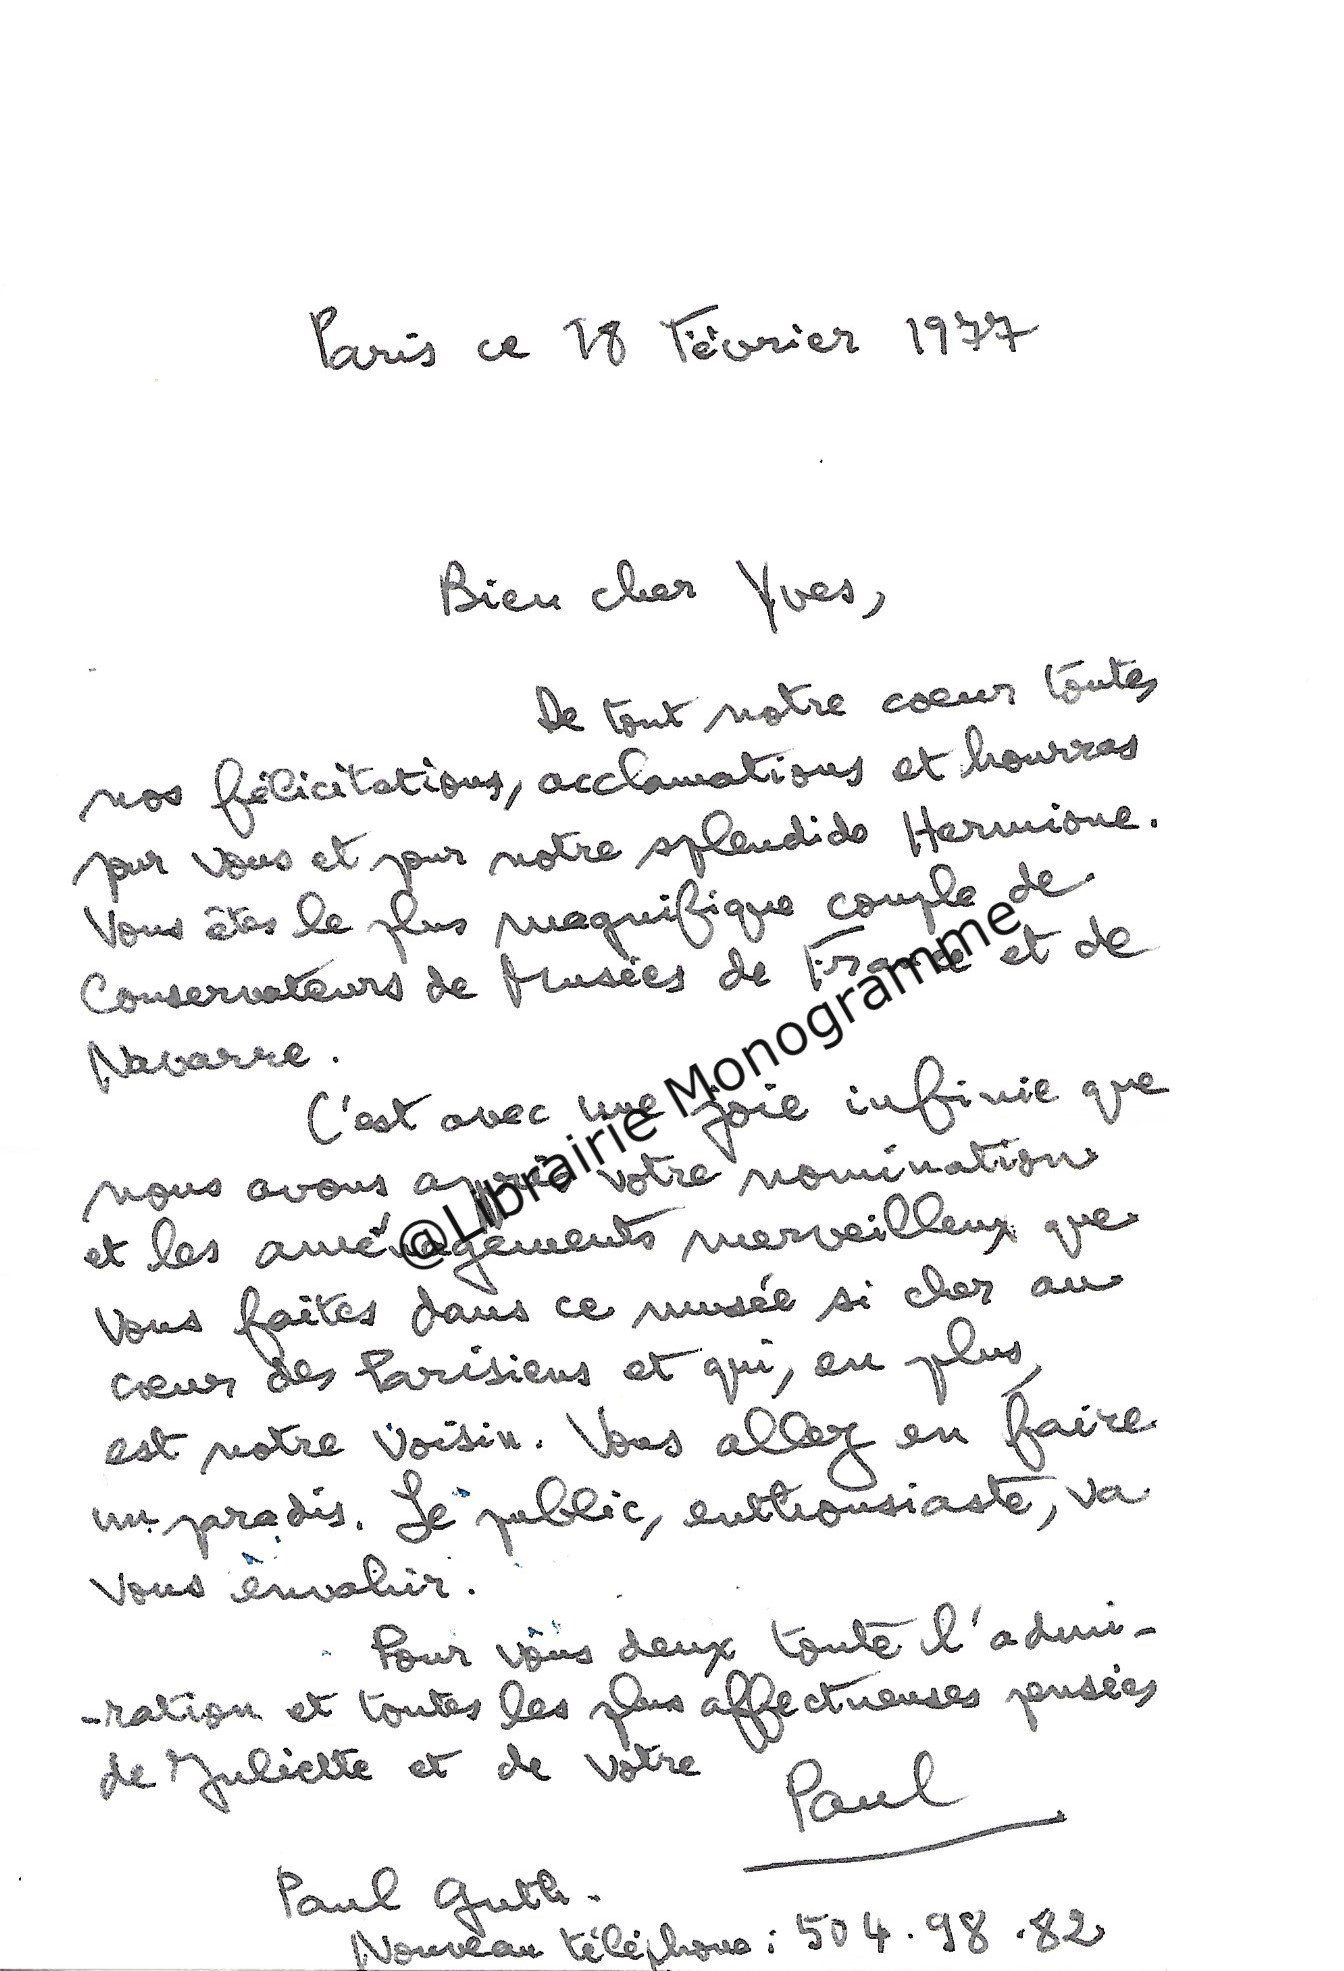 Paris ce 18 Février 1977
Bien cher Yves,
De tout notre coeur toutes
nos félicitations, acclamations et hourras
pour vous et pour notre splendide Hermione.
Vous êtes le plus magnifique couple de
Conservateurs de Musées de France et de
Navarre.
C'est avec une joie infinie que
nous avons appris votre nomination
et les aménagements merveilleux que
vous faites dans ce musée si cher au
coeur des Parisiens et qui, en plus,
est notre voisin. Vous allez en faire
un paradis. Le public, enthousiaste, va
vous envahir.
Pour vous deux toute l'admi-
-ration et toutes les plus affectueuses pensées
de Juliette et de votre
Paul
Paul Guth.
Nouveau téléphone : 504.98.82
@Librairie Monogramme